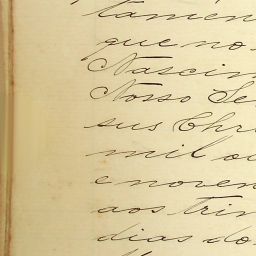 tamen
que no
Nascim
Nosso Se
sus Chri
mil oi
e noven
aos trin
dias do